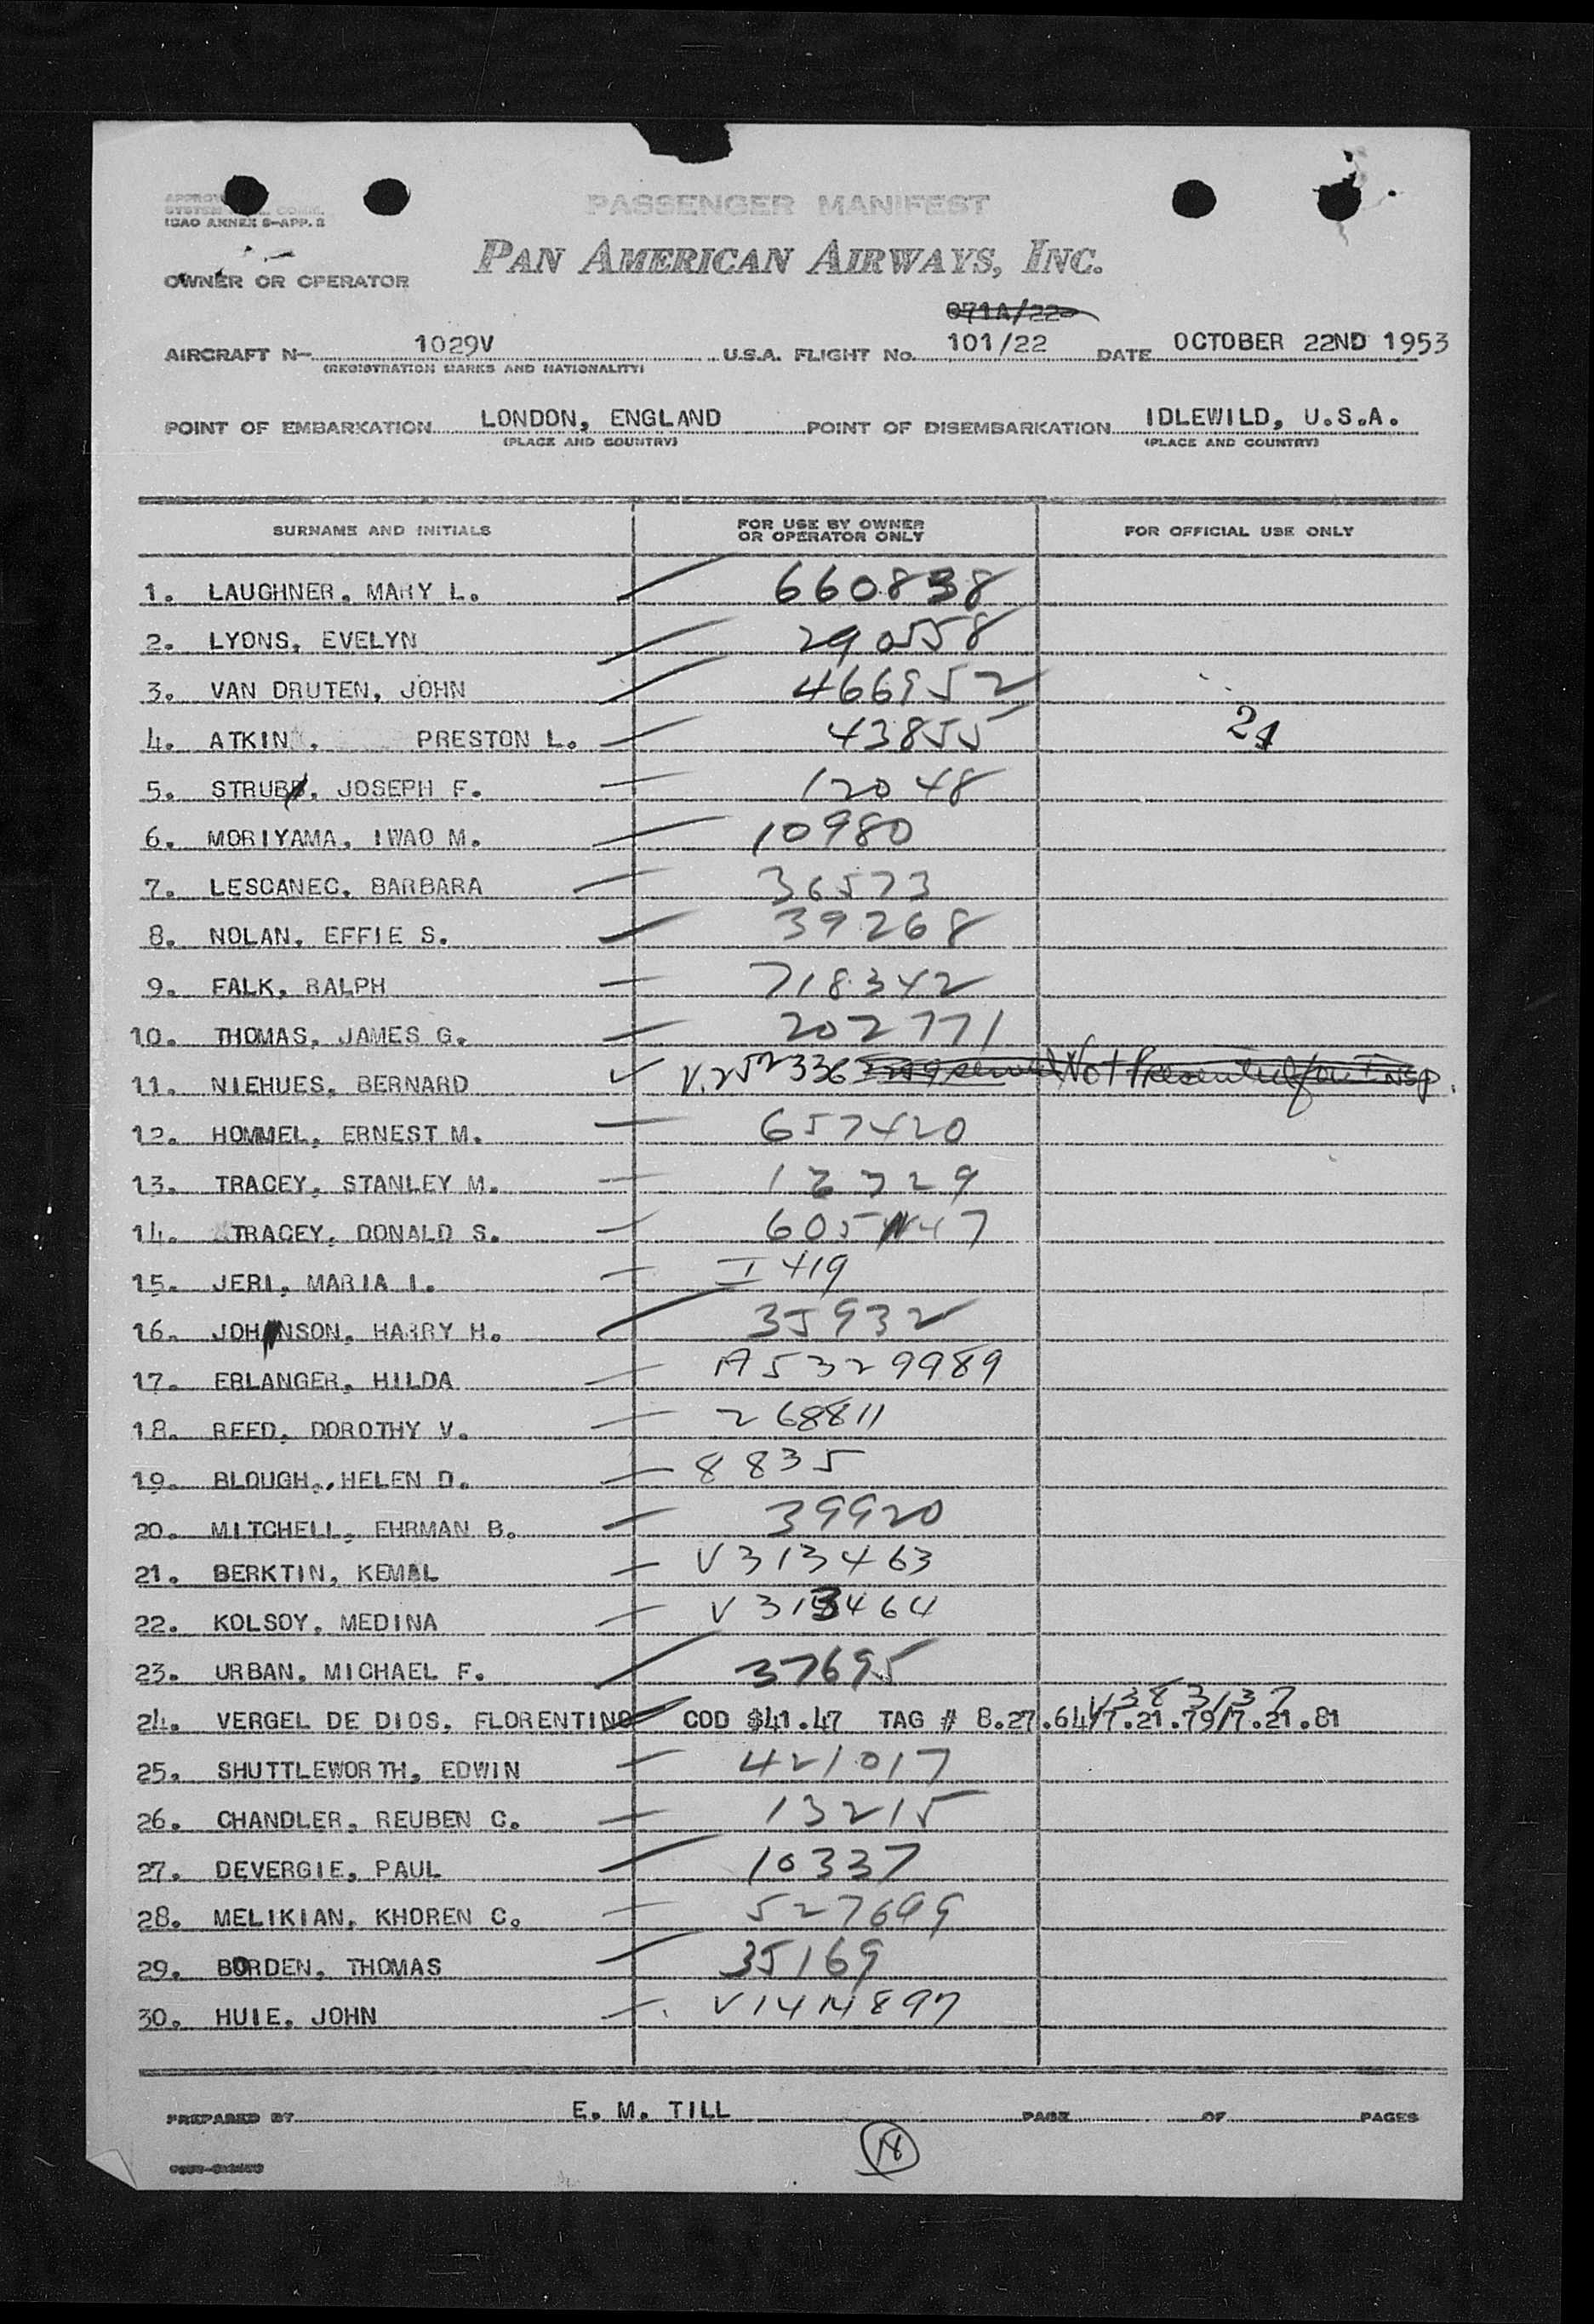 PASSENGER MANIFEST
ICAO ANNEX 9-APP. 3
PAN AMERICAN AIRWAYS, INC.
OWNER OR OPERATOR
071A/22
AIRCRAFT N- 1029V U.S.A. FLIGHT No. 101/22 DATE OCTOBER 22ND 1953
(REGISTRATION MARKS AND NATIONALITY)
POINT OF EMBARKATION LONDON, ENGLAND POINT OF DISEMBARKATION IDLEWILD, U.S.A.
(PLACE AND COUNTRY) (PLACE AND COUNTRY)
SURNAME AND INITIALS FOR USE BY OWNER OR OPERATOR ONLY FOR OFFICIAL USE ONLY
1. LAUGHNER, MARY L. 660838
2. LYONS, EVELYN 290558
3. VAN DRUTEN, JOHN 466952
4. ATKIN , PRESTON L. 43855 21
5. STRUB , JOSEPH F. 12048
6. MORIYAMA, IWAO M. 10980
7. LESCANEC, BARBARA 36573
8. NOLAN, EFFIE S. 39268
9. FALK, RALPH 718342
10. THOMAS, JAMES G. 202771
11. NIEHUES, BERNARD V.252336 Not Presented for Insp.
12. HOMMEL, ERNEST M. 657420
13. TRACEY, STANLEY M. 13729
14. TRACEY, DONALD S. 605 47
15. JERI, MARIA I. I 419
16. JOHNSON, HARRY H. 35932
17. ERLANGER, HILDA A5329989
18. REED, DOROTHY V. 268811
19. BLOUGH., HELEN D. 8835
20. MITCHELL, EHRMAN B. 39920
21. BERKTIN, KEMAL V313463
22. KOLSOY, MEDINA V313464
23. URBAN, MICHAEL F. 37695
V383137
24. VERGEL DE DIOS, FLORENTINO COD $41.47 TAG # 8.27.64/7.21.79/7.21.81
25. SHUTTLEWORTH, EDWIN 421017
26. CHANDLER, REUBEN C. 13215
27. DEVERGIE, PAUL 10337
28. MELIKIAN, KHOREN C. 527699
29. BORDEN, THOMAS 35169
30. HUIE, JOHN V1414897
PREPARED BY E. M. TILL PAGE OF PAGES